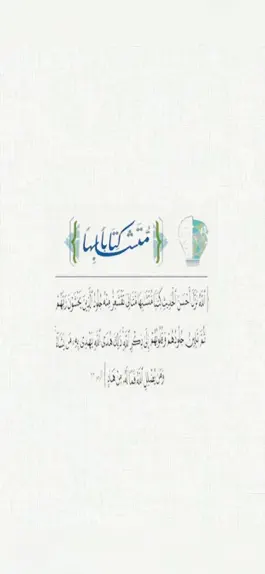 كتابا متشابها
( ٱللَّهُ نَزَّلَ أَحْسَنَ ٱلْحَدِيثِ كِتَٰبًا مُّتَشَٰبِهًا مَّثَانِيَ تَقْشَعِرُّ مِنْهُ جُلُودُ ٱلَّذِينَ يَخْشَوْنَ رَبَّهُمْ
ثُمَّ تَلِينُ جُلُودُهُمْ وَقُلُوبُهُمْ إِلَىٰ ذِكْرِ ٱللَّهِ ذَٰلِكَ هُدَى ٱللَّهِ يَهْدِى بِهِۦ مَن يَشَآءُ
وَمَن يُضْلِلِ ٱللَّهُ فَمَا لَهُۥ مِنْ هَادٍ )